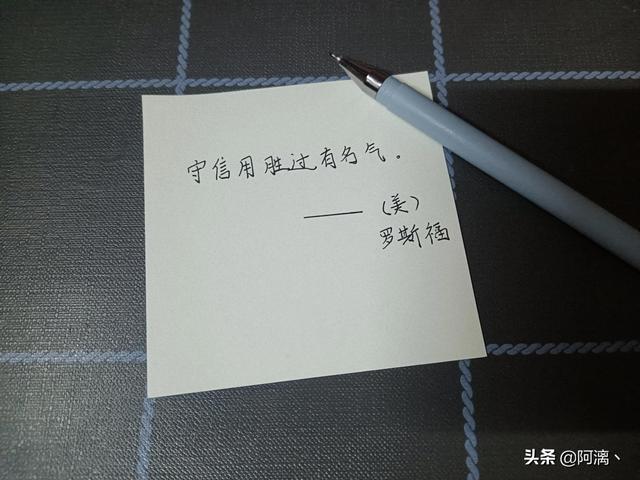 守信用胜过有名气。
——（美）
罗斯福
头条 @阿漓丶